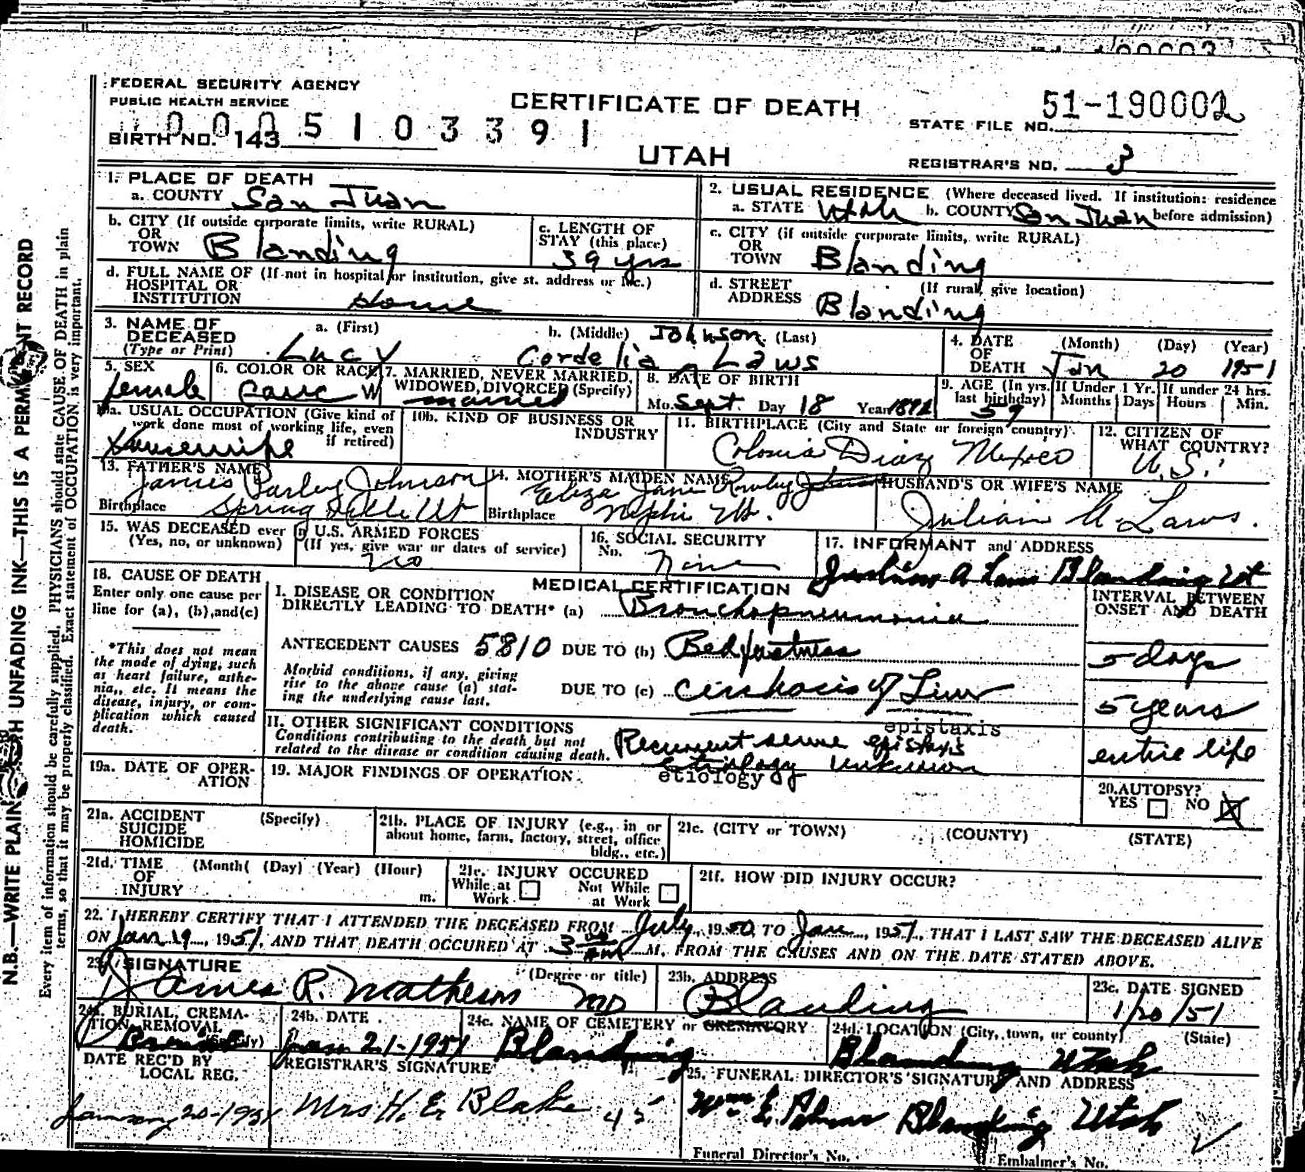 FEDERAL SECURITY AGENCY
PUBLIC HEALTH SERVICE
CERTIFICATE OF DEATH
51-190002
STATE FILE NO.
0005103391
BIRTH NO. 143
UTAH
REGISTRAR'S NO. 3
1. PLACE OF DEATH
a. COUNTY San Juan
2. USUAL RESIDENCE (Where deceased lived. If institution: residence
a. STATE Utah b. COUNTY San Juan before admission)
b. CITY (If outside corporate limits, write RURAL)
OR
TOWN Blanding
c. LENGTH OF
STAY (this place)
39 yrs
c. CITY (if outside corporate limits, write RURAL)
OR
TOWN Blanding
d. FULL NAME OF (If not in hospital or institution, give st. address or loc.)
HOSPITAL OR
INSTITUTION Home
d. STREET (If rural, give location)
ADDRESS Blanding
3. NAME OF
DECEASED
(Type or Print)
a. (First) b. (Middle) Johnson (Last)
Lucy Cordelia Laws
4. DATE
OF
DEATH
(Month) (Day) (Year)
Jan 20 1951
5. SEX
female
6. COLOR OR RACE
Cauc W
7. MARRIED, NEVER MARRIED,
WIDOWED, DIVORCED (Specify)
married
8. DATE OF BIRTH
Mo. Sept. Day 18 Year 1891
9. AGE (In yrs.
last birthday)
59
If Under 1 Yr.
Months Days
If under 24 hrs.
Hours Min.
10a. USUAL OCCUPATION (Give kind of
work done most of working life, even
if retired)
Housewife
10b. KIND OF BUSINESS OR
INDUSTRY
11. BIRTHPLACE (City and State or foreign country)
Colonia Diaz Mexico
12. CITIZEN OF
WHAT COUNTRY?
U.S.
13. FATHER'S NAME
James Parley Johnson
Birthplace Spring Ut
14. MOTHER'S MAIDEN NAME
Eliza Jane
Birthplace Nephi Ut.
HUSBAND'S OR WIFE'S NAME
Julian A Laws.
15. WAS DECEASED ever in U.S. ARMED FORCES
(Yes, no, or unknown) (If yes, give war or dates of service)
no
16. SOCIAL SECURITY
No. None
17. INFORMANT and ADDRESS
A Laws Blanding Ut
18. CAUSE OF DEATH
Enter only one cause per
line for (a), (b), and (c)
*This does not mean
the mode of dying, such
as heart failure, asthe-
nia, etc. It means the
disease, injury, or com-
plication which caused
death.
MEDICAL CERTIFICATION
I. DISEASE OR CONDITION
DIRECTLY LEADING TO DEATH* (a) Bronchopneumonia
INTERVAL BETWEEN
ONSET AND DEATH
ANTECEDENT CAUSES 5810 DUE TO (b) Bedfastness
5 days
Morbid conditions, if any, giving
rise to the above cause (a) stat-
ing the underlying cause last.
DUE TO (c) Cirrhosis of Liver
5 years
II. OTHER SIGNIFICANT CONDITIONS
Conditions contributing to the death but not
related to the disease or condition causing death.
epistaxis
Recurrent severe epistaxis
etiology unknown
etiology
entire life
19a. DATE OF OPER-
ATION
19. MAJOR FINDINGS OF OPERATION
20. AUTOPSY?
YES NO X
21a. ACCIDENT (Specify)
SUICIDE
HOMICIDE
21b. PLACE OF INJURY (e.g., in or
about home, farm, factory, street, office
bldg., etc.)
21c. (CITY or TOWN) (COUNTY) (STATE)
21d. TIME (Month) (Day) (Year) (Hour)
OF
INJURY m.
21e. INJURY OCCURED
While at Not While
Work at Work
21f. HOW DID INJURY OCCUR?
22. I HEREBY CERTIFY THAT I ATTENDED THE DECEASED FROM July, 1950, TO Jan, 1951, THAT I LAST SAW THE DECEASED ALIVE
ON Jan 19, 1951, AND THAT DEATH OCCURED AT 3 AM M, FROM THE CAUSES AND ON THE DATE STATED ABOVE.
23. SIGNATURE (Degree or title)
James R. Mathews MD
23b. ADDRESS
Blanding
23c. DATE SIGNED
1/20/51
24a. BURIAL, CREMA-
TION, REMOVAL
(Specify)
Burial
24b. DATE
Jan 21-1951
24c. NAME OF CEMETERY or CREMATORY
Blanding
24d. LOCATION (City, town, or county) (State)
Blanding Utah
DATE REC'D BY
LOCAL REG.
January 20-1951
REGISTRAR'S SIGNATURE
Mrs H. E. Blake 45
25. FUNERAL DIRECTOR'S SIGNATURE AND ADDRESS
Wm E Blanding Utah
Funeral Director's No. Embalmer's No.
N.B.—WRITE PLAINLY WITH UNFADING INK—THIS IS A PERMANENT RECORD
Every item of information should be carefully supplied. PHYSICIANS should state CAUSE OF DEATH in plain
terms, so that it may be properly classified. Exact statement of OCCUPATION is very important.